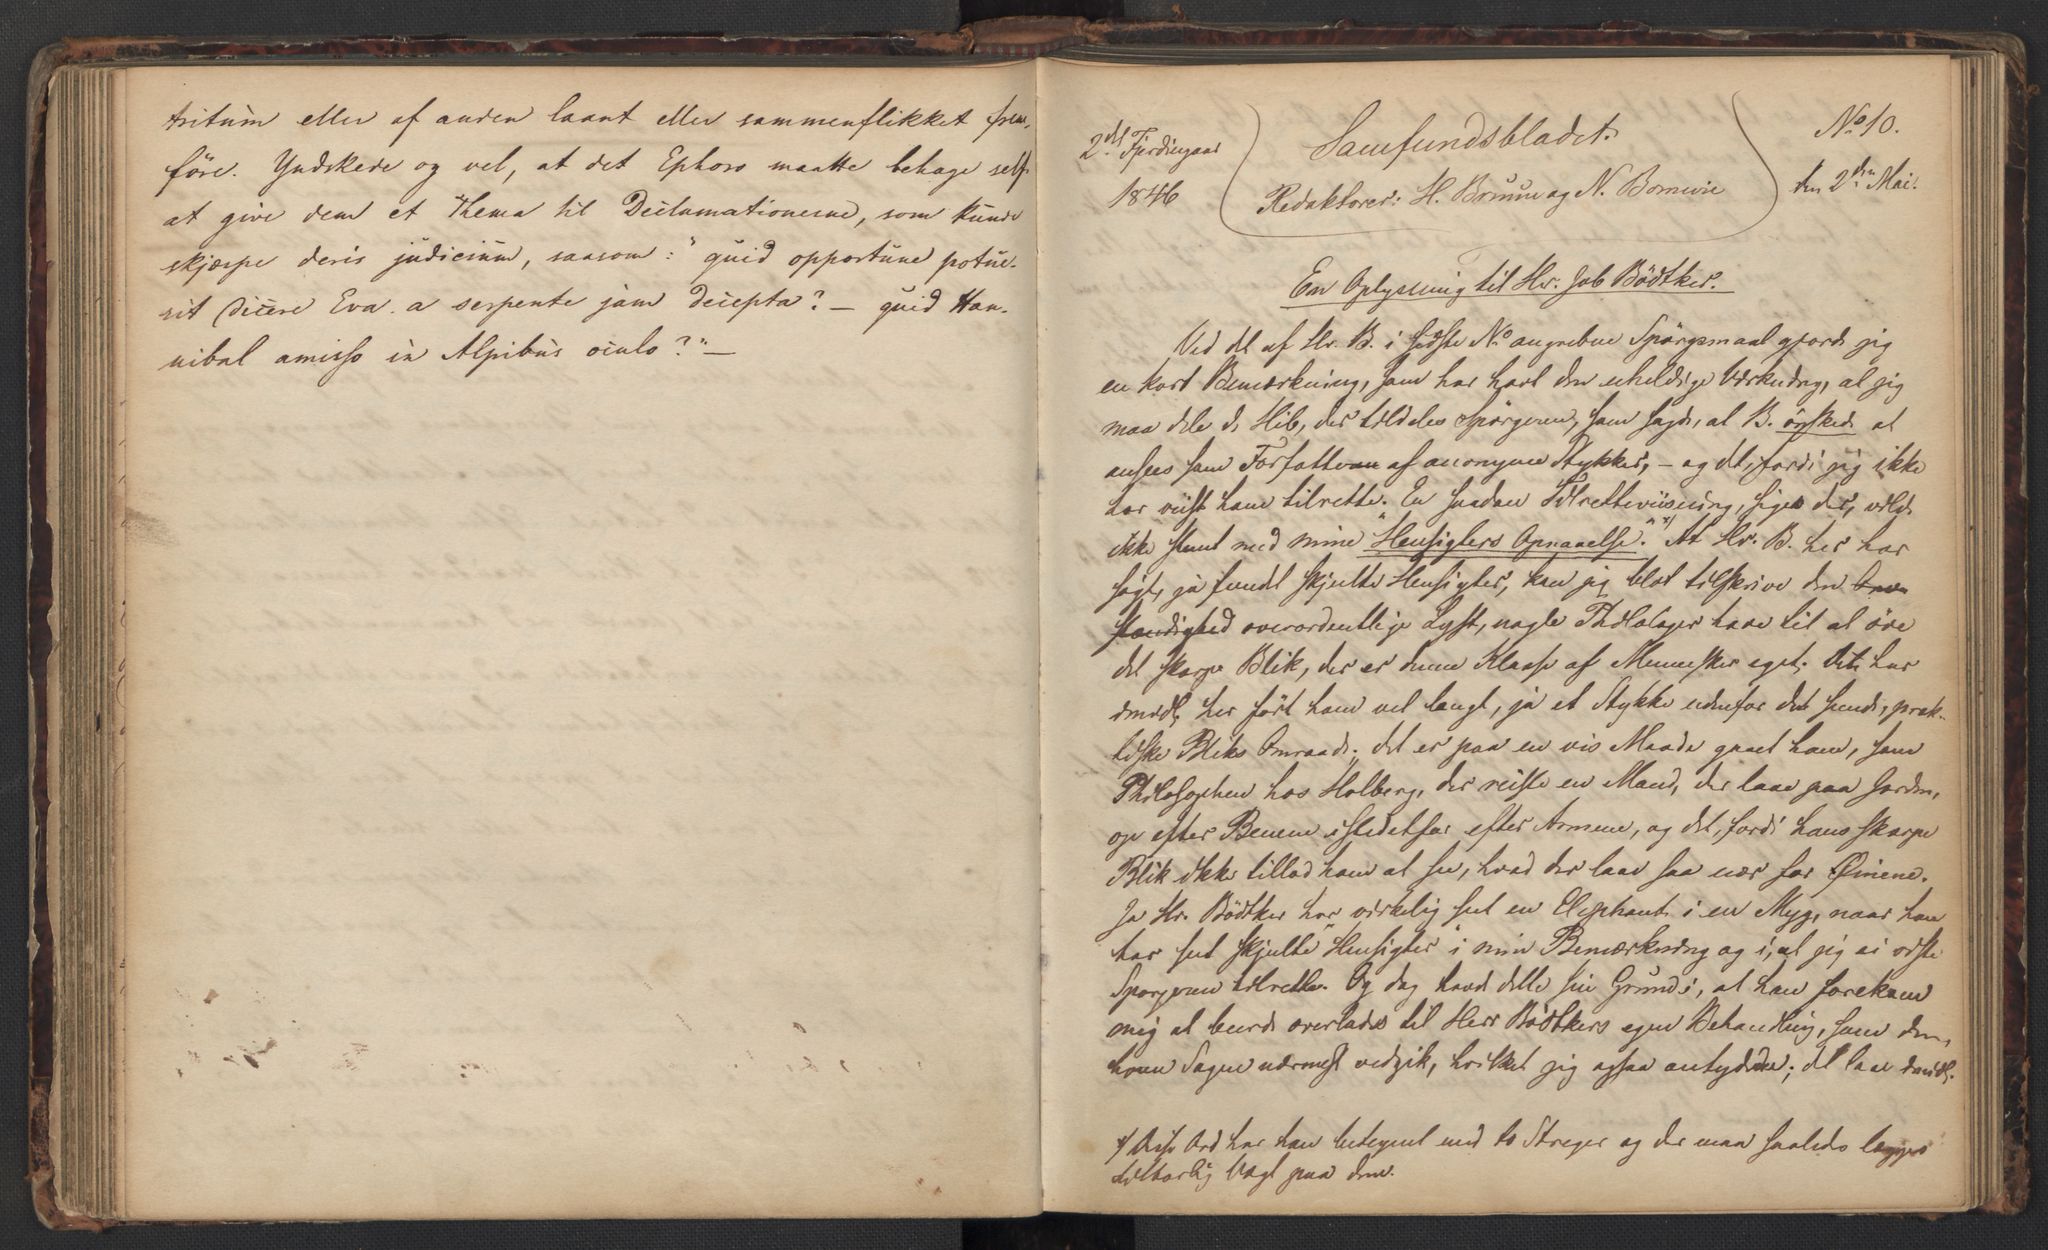 tritum eller af anden laant eller sammenflikket frem-
före. Yndskede og vel, at det Ephoro maatte behage self
at give dem et Thema til Declamationerne, som kunde
skjærpe deris judicium, saasom: "quid opportune potue-
rit dicere Eva a serpente jam decepta? — quid Han-
nibal amisso in Alpibus oculo?" —
2det Fjerdingaar
1846
Samfundsbladet.
Redaktører: H. Bruun og N.
No 10.
den 2den Mai.
En Oplysning til Hr. Job Bödtker.
Ved det af Hr. B. i sidste No. angrebne Spörgsmaal gjorde jeg
en kort Bemærkning, som har havt den uheldige Virkning, at jeg
maa dele de Hib, der tildeles Spörgeren, som sagde, at B. önskede at
ansees som Forfatteren af anonyme Stykker, — og det, fordi jeg ikke
har viist ham tilrette. En saadan Tilretteviisning, siges der, vilde
ikke stemt med mine "Hensigters Opnaaelse." *) At Hr. B. her har
sögt, ja fundet skjulte Hensigter, kan jeg blot tilskrive den Om-
stændighed overordentlige Lyst, nogle Philologer have til at öve
det skarpe Blik, der er denne Klasse af Mennesker eget. Det har
imidl. her fört ham vel langt, ja et Stykke udenfor det sunde, prak-
tiske Bliks Omraade; det er paa en vis Maade gaaet ham, som
Philosophen hos Holberg, der reiste en Mand, der laae paa Jorden,
op efter Benene istedetfor efter Armene, og det, fordi hans skarpe
Blik ikke tillod ham at see, hvad der laae saa nær for Øinene.
Ja Hr. Bödtker har virkelig seet en Elephant i en Myg, naar han
har seet skjulte "Hensigter" i min Bemærkning og i, at jeg ei viste
Spörgeren tilrette. Og dog havde dette sin Grund i, at han forekom
mig at burde overlades til Herr Bödtkers egen Behandling, som den,
hvem Sagen nærmest vedgik, hvilket jeg ogsaa antydede; det laae imidl.
*) Disse Ord har han betegnet med to Streger og der maa saaledes lægges
tilbörlig Vægt paa dem.